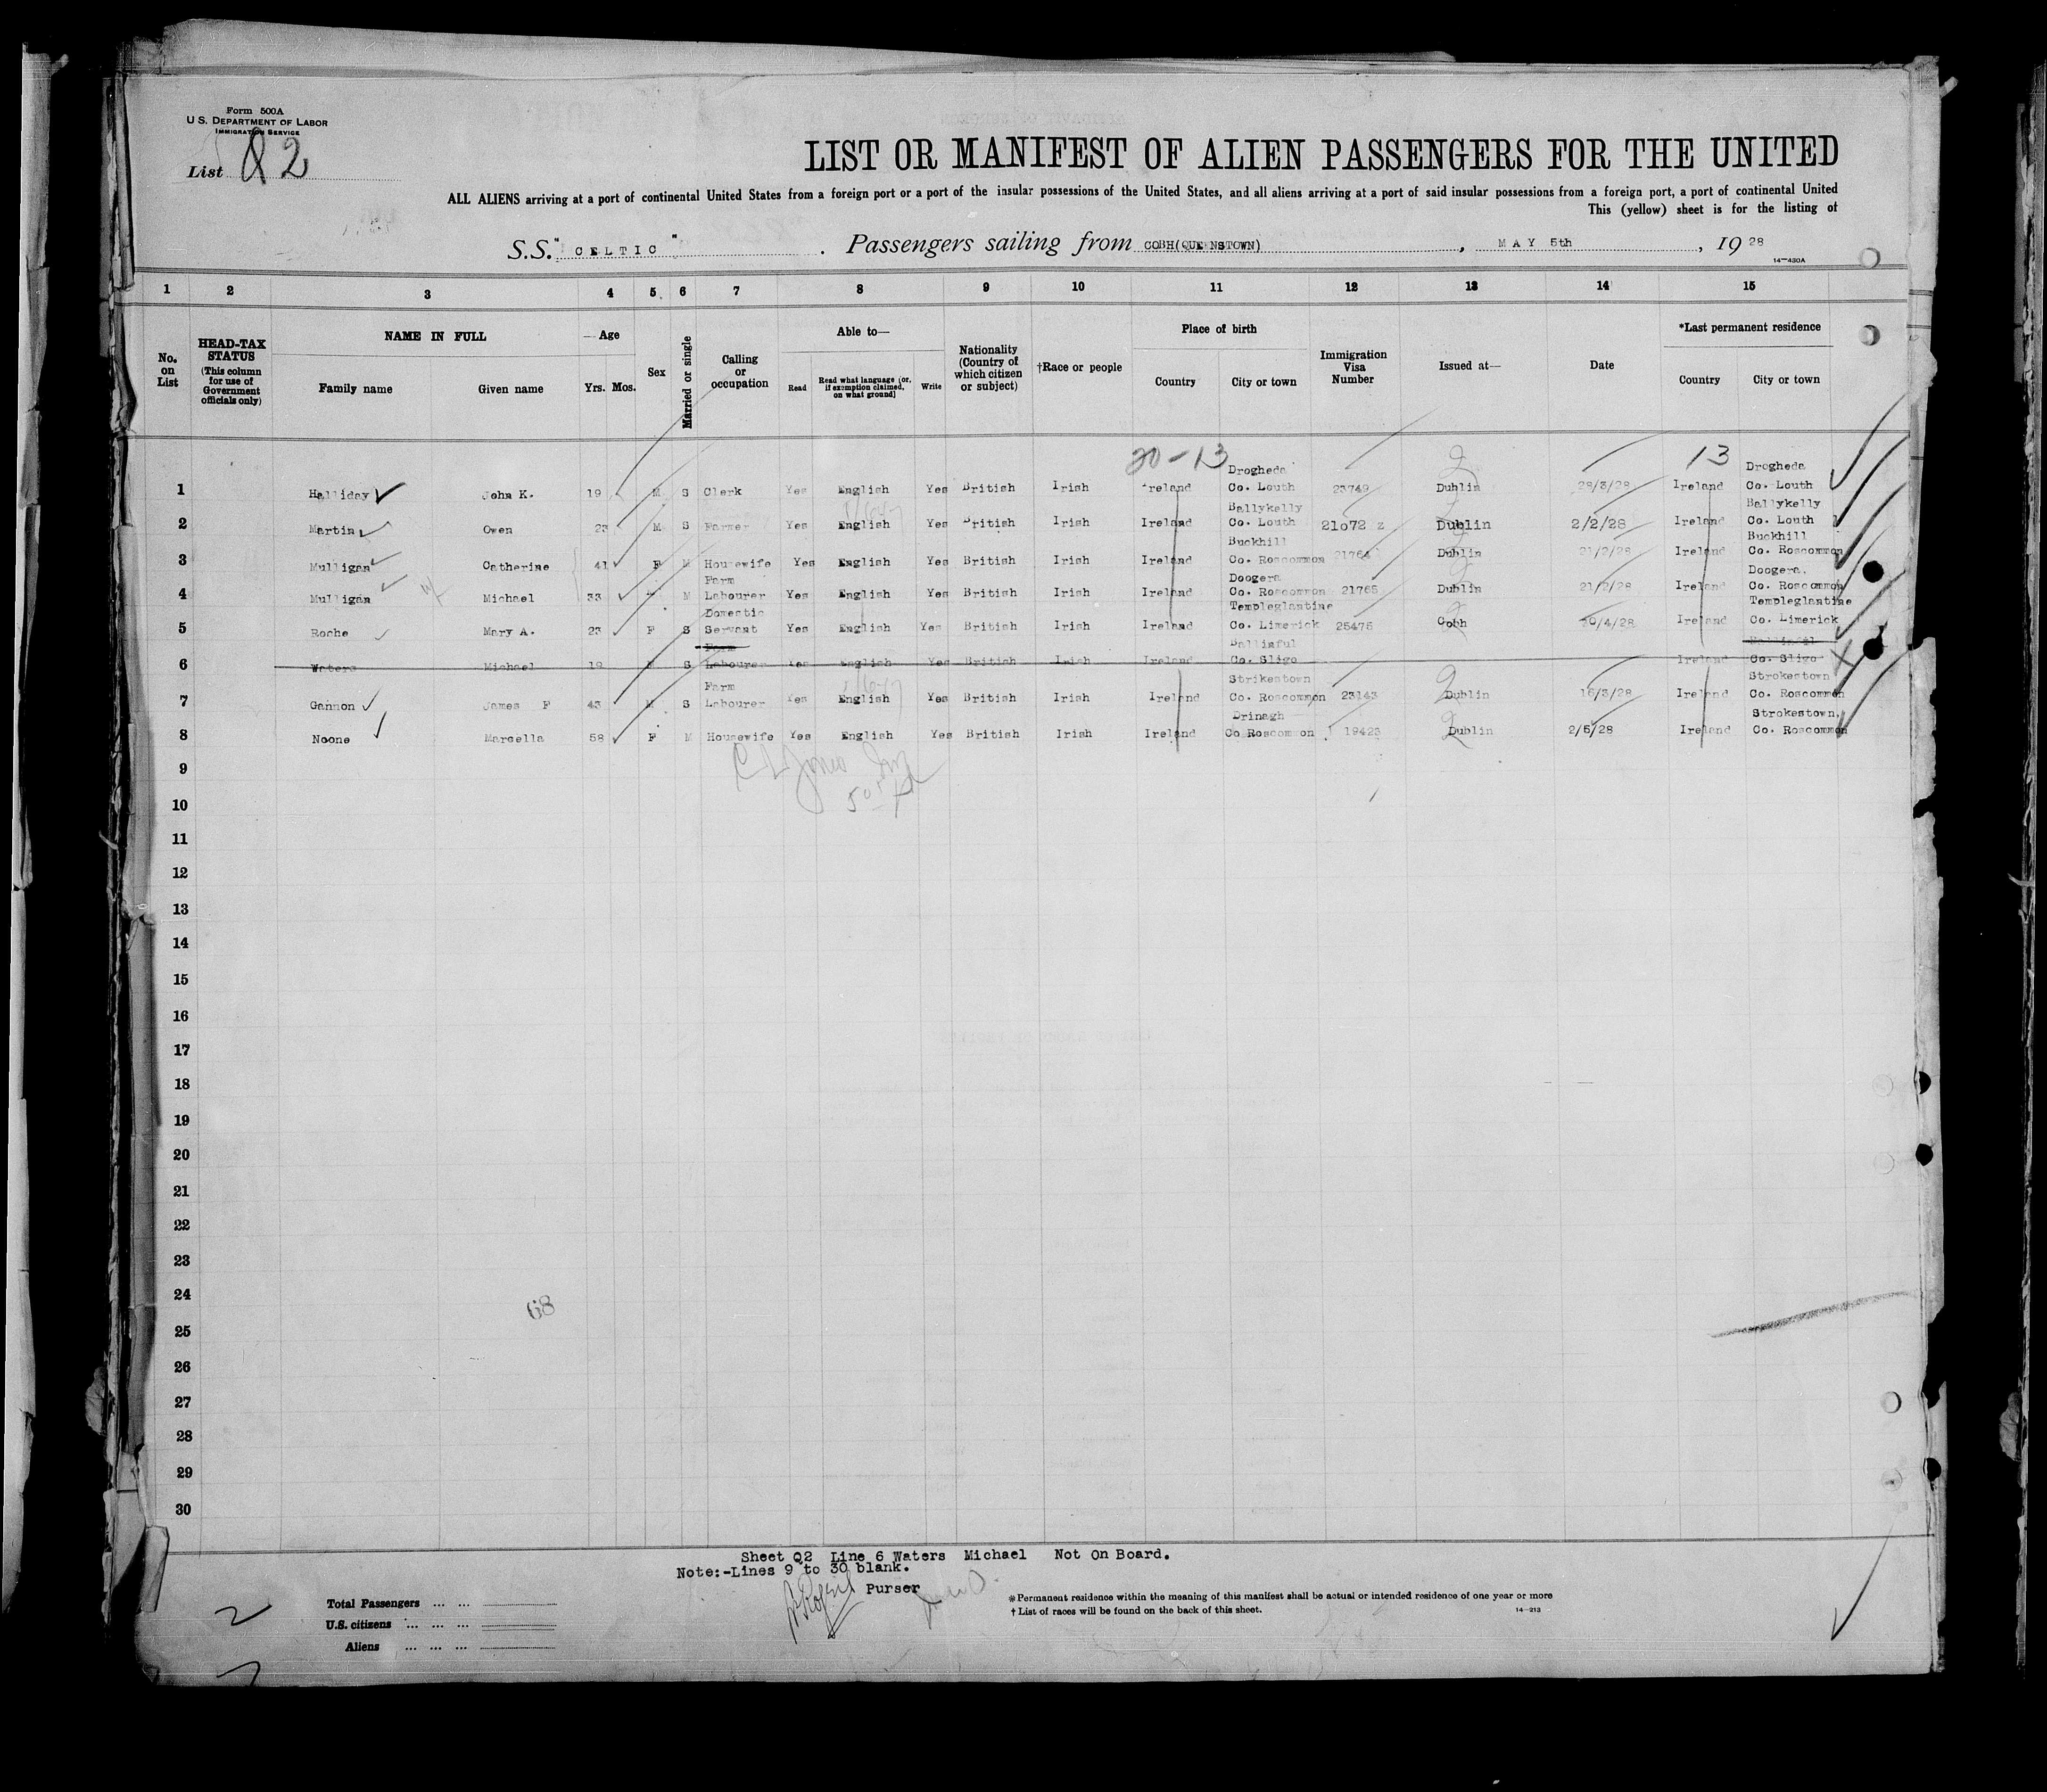 Form 500A
U.S. DEPARTMENT OF LABOR
IMMIGRATION SERVICE
List Q2
LIST OR MANIFEST OF ALIEN PASSENGERS FOR THE UNITED
ALL ALIENS arriving at a port of continental United States from a foreign port or a port of the insular possessions of the United States, and all aliens arriving at a port of said insular possessions from a foreign port, a port of continental United
This (yellow) sheet is for the listing of
S.S. "CELTIC". Passengers sailing from COBH(QUEENSTOWN), MAY 5th, 19 28
14—430A
1 2 3 4 5 6 7 8 9 10 11 12 13 14 15
No. on List
HEAD-TAX STATUS (This column for use of Government officials only)
NAME IN FULL
Family name Given name
Age
Yrs. Mos.
Sex
Married or single
Calling or occupation
Able to—
Read
Read what language [or, if exemption claimed, on what ground]
Write
Nationality (Country of which citizen or subject)
†Race or people
Place of birth
Country City or town
Immigration Visa Number
Issued at—
Date
*Last permanent residence
Country City or town
20-13 13
Drogheda Drogheda
1 Halliday John K. 19 M S Clerk Yes English Yes British Irish Ireland Co. Louth 23749 Dublin 28/3/28 Ireland Co. Louth
Ballykelly Ballykelly
2 Martin Owen 23 M S Farmer Yes English Yes British Irish Ireland Co. Louth 21072 2 Dublin 2/2/28 Ireland Co. Louth
Buckhill Buckhill
3 Mulligan Catherine 41 F M Housewife Yes English Yes British Irish Ireland Co. Roscommon 21764 Dublin 21/2/28 Ireland Co. Roscommon
Farm Doogera Doogera.
4 Mulligan Michael 33 M Labourer Yes English Yes British Irish Ireland Co. Roscommon 21765 Dublin 21/2/28 Ireland Co. Roscommon
Domestic Templeglantine Templeglantine
5 Roche Mary A. 23 F S Servant Yes English Yes British Irish Ireland Co. Limerick 25475 Cobh 20/4/28 Ireland Co. Limerick
Farm Ballinful Ballinful
6 Waters Michael 19 M S Labourer Yes English Yes British Irish Ireland Co. Sligo Ireland Co. Sligo
Farm Strikestown Strokestown
7 Gannon James F 43 M S Labourer Yes English Yes British Irish Ireland Co. Roscommon 23143 Dublin 16/3/28 Ireland Co. Roscommon
Drinagh Strokestown,
8 Noone Marcella 58 F M Housewife Yes English Yes British Irish Ireland Co Roscommon 19423 Dublin 2/5/28 Ireland Co. Roscommon
9
10
11
12
13
14
15
16
17
18
19
20
21
22
23
24
68
25
26
27
28
29
30
Sheet Q2 Line 6 Waters Michael Not On Board.
Note:-Lines 9 to 30 blank.
Purser
Total Passengers ... ...
U.S. citizens ... ... ...
Aliens ... ... ...
*Permanent residence within the meaning of this manifest shall be actual or intended residence of one year or more
† List of races will be found on the back of this sheet.
14—213